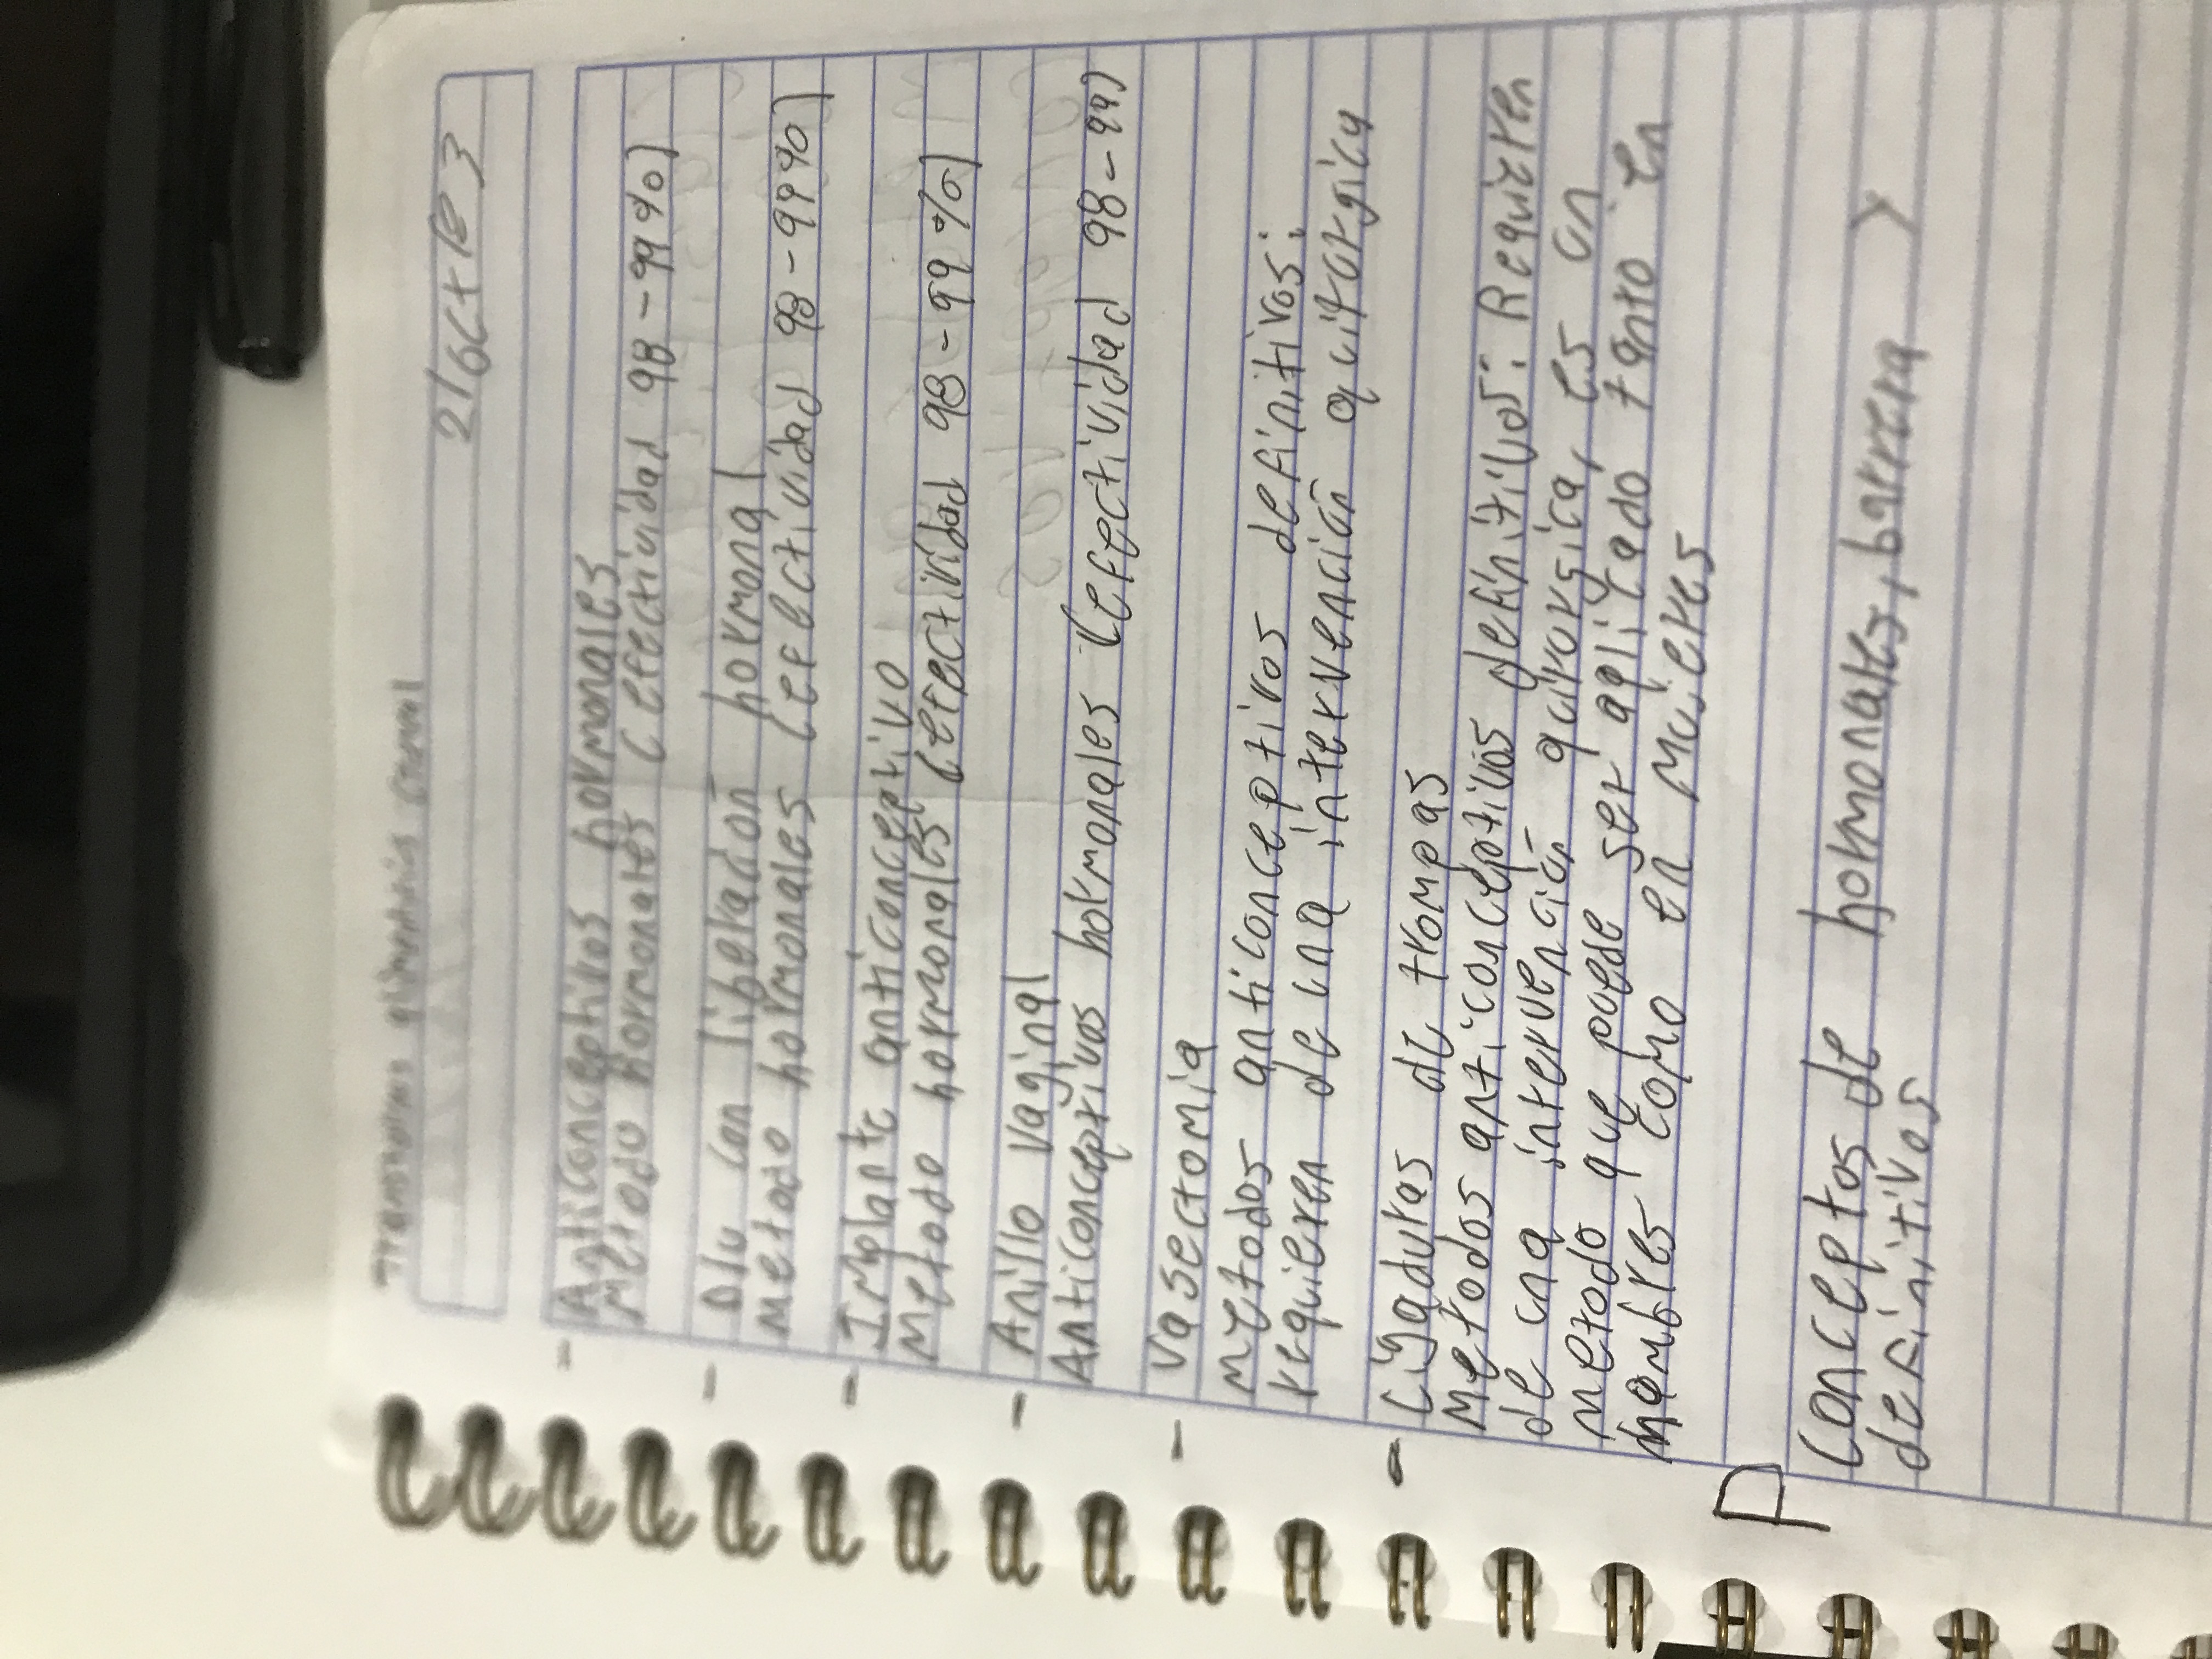 21 oct
- Anticonceptivos hormonales
Metodo hormonales (effectividad 98-99%)
- DIU con liberadon hormonal
metodo hormonales (effectividad 98-99%)
- Implante anticonceptivo
Metodo hormonales (effectividad 98-99%)
- Anillo vaginal
Anticonceptivos hormonales (effectividad 98-99)
- Vasectomia
Metodos anticonceptivos definitivos:
requieren de una intervención quirurgica
- Ligaduras de trompas
Metodos anticonceptivos definitivos: Requieren
de una intervención quirurgica, es un
metodo que puede ser aplicado tanto en
hombres como en mujeres
P
Conceptos de hormonales, barrera y
definitivos